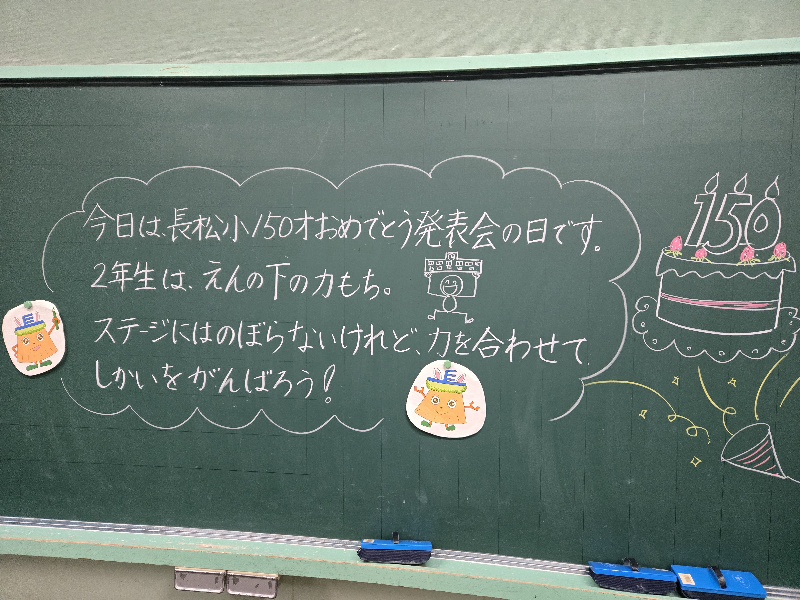 今日は、長松小150才おめでとう発表会の日です。
2年生は、えんの下の力もち。
ステージにはのぼらないけれど、力を合わせて、
しかいをがんばろう!
150